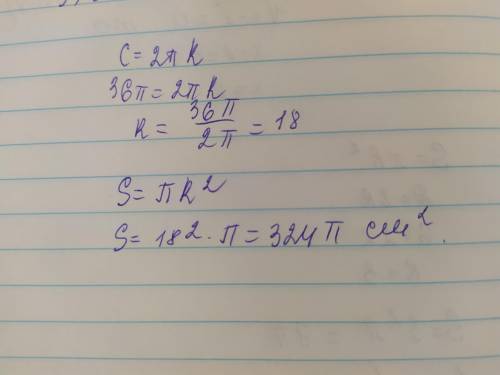 C = 2πR
36π = 2πR
R = 36π / 2π = 18
S = πR²
S = 18² · π = 324π см².